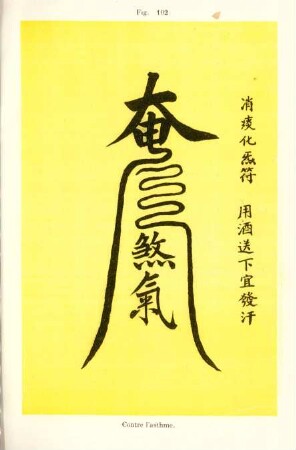 Fig. 102
消痰化炁符 用酒送下宜發汗
奄
煞氣
Contre l'asthme.